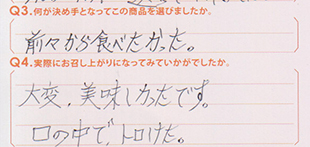 Q3.何が決め手となってこの商品を選びましたか。
前々から食べたかった。
Q4.実際にお召し上がりになってみていかがでしたか。
大変、美味しかったです。
口の中で、トロけた。